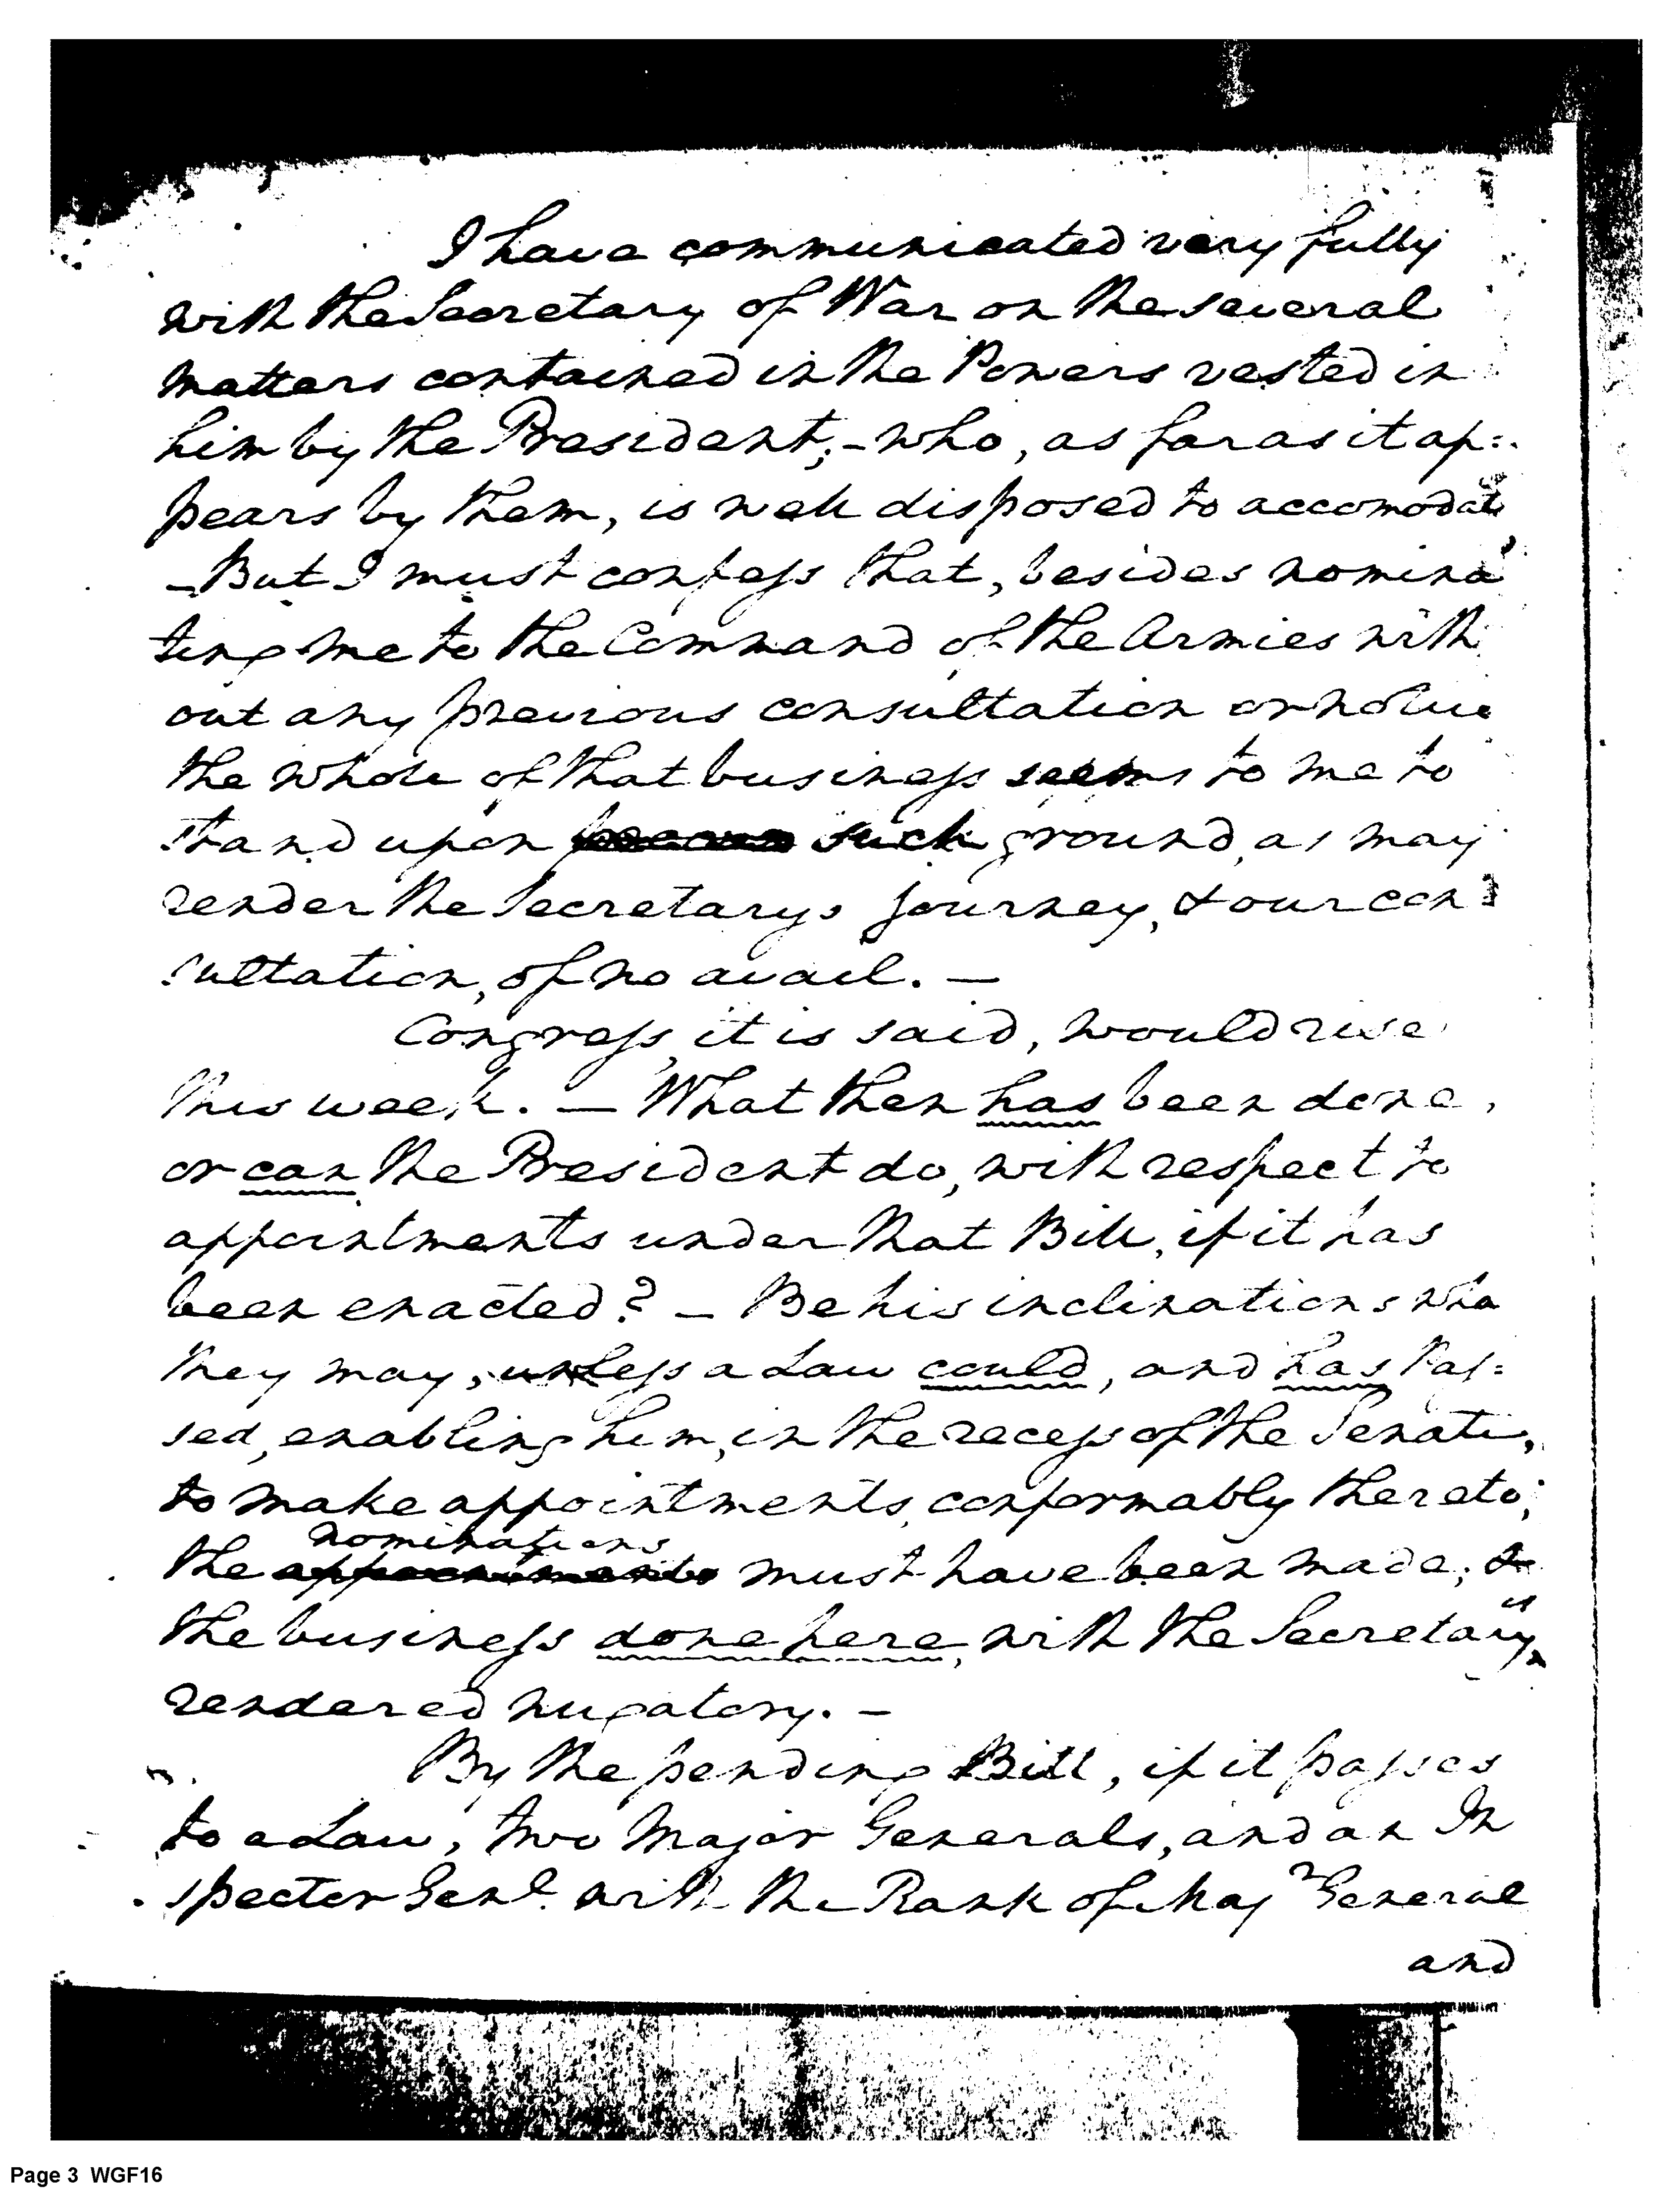 I have communicated very fully
with the Secretary of War on the several
matters contained in the Powers vested in
him by the President; - who, as far as it ap=
pears by them, is well disposed to accomodate
- But I must confess that, besides nomina
ting me to the Command of the Armies with
out any previous consultation or notice
the whole of that business seems to me to
stand upon such ground, as may
render the Secretarys journey, & our con
sultation, of no avail. —
Congress, it is said, would rise
this week. — What then has been done,
or can the President do, with respect to
appointments under that Bill, if it has
been enacted? — Be his inclinations wha
they may, unless a Law could, and has Pas=
sed, enabling him, in the recess of the Senate,
to make appointments, conformably thereto;
nominations
the appointments must have been made; &
is
the business done here, with the Secretary,
rendered nugatory. —
By the pending Bill, if it passes
to a Law, two Major Generals, and an In
spector Genl. with the Rank of Majr General
and
Page 3 WGF16